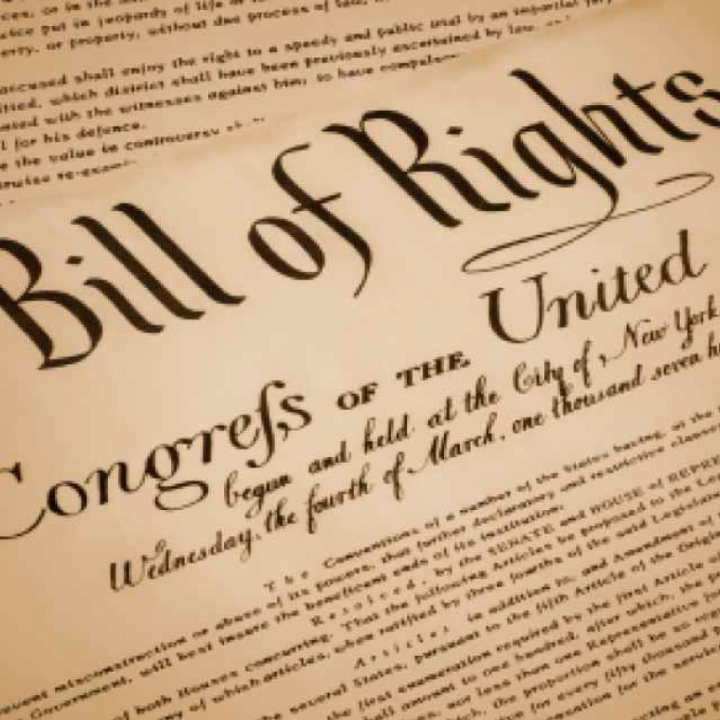 ces, or in the
tice put in jeopardy of life or
erty, or property, without due process of law,
accused shall enjoy the right to a speedy and public trial by an impartial
itted, which district shall have been previously ascertained by law,
nted with the witnesses against him; to have compulsor
l for his defence.
e the value in controversy
rwise re-exam
Bill of Rights
Congreſs OF THE United
begun and held at the City of New York
Wednesday, the fourth of March, one thousand seven h
The Conventions of a number of the States having, at the
event misconstruction or abuse of its powers, that further declaratory and restrictive clauses
Government, will best insure the beneficent ends of its institution;
Resolved, by the SENATE and HOUSE of REPRE
of both Houses concurring. That the following Articles be proposed to the Leg
y of which articles, when ratified by three fourths of the said Legislatu
Articles in addition to, and Amendment of
e several States, pursuant to the fifth Article of the Origin
the first enumeration required by the first Article
all amount to one hundred, after which, the
nor less than one Representative
ch, the proportion shall be so
for every fifty thousand
ensation for the service